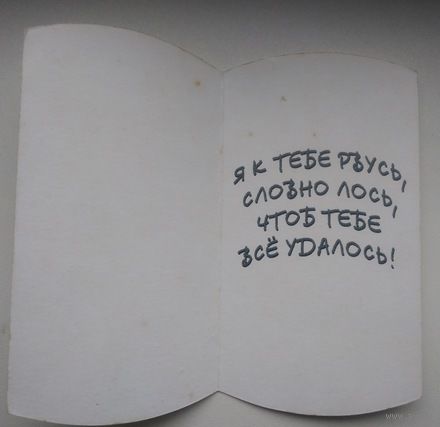 Я К ТЕБЕ РВУСЬ,
СЛОВНО ЛОСЬ,
ЧТОБ ТЕБЕ
ВСЁ УДАЛОСЬ!